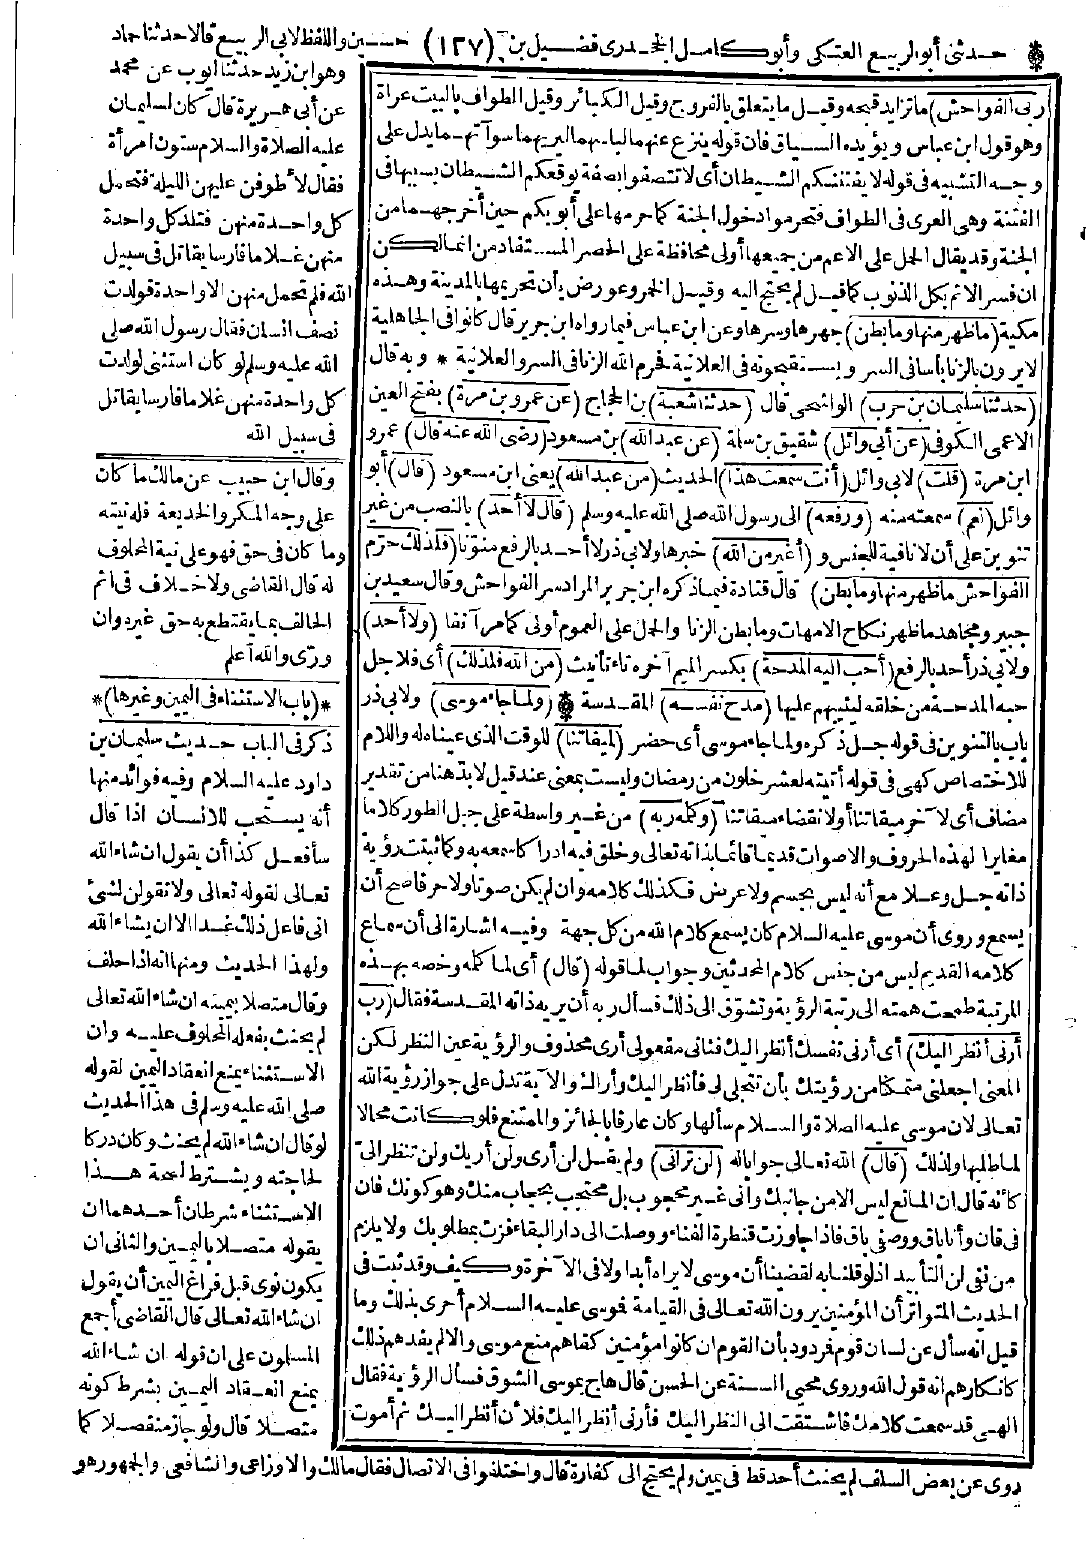 حدثني أبو الربيع العتكي وأبو كامل الجحدري فضيل بن (١٢٧) حسين واللفظ لابي الربيع قالا حدثنا حماد
ربى الفواحش) ما تزايد قبحه وقيل ما يتعلق بالفروج وقيل الكبائر وقيل الطواف بالبيت عراة
وهو قول ابن عباس ويؤيده السياق فان قوله ينزع عنهما لباسهما ليريهما سوآتهما يدل على
وجه التشبيه في قوله لا يفتننكم الشيطان أى لا تتصفوا بصفة يوقعكم الشيطان بسببها فى
الفتنة وهى العرى فى الطواف فتحرموا دخول الجنة كما حرمها على أبويكم حين أخرجهما من
الجنة وقد يقال الحمل على الاعم من جميعها أولى محافظة على الحصر المستفاد من انما لكن
ان فسر الاثم بكل الذنوب كما قيل لم يحتج اليه وقيل الخمر وعورض بأن تحريمها بالمدينة وهذه
مكية (ما ظهر منها وما بطن) جهرها وسرها وعن ابن عباس فيما رواه ابن جرير قال كانوا فى الجاهلية
لا يرون بالزنا بأسا فى السر ويستقبحونه فى العلانية فحرم الله الزنا فى السر والعلانية * وبه قال
(حدثنا سليمان بن حرب) الواشحى قال (حدثنا شعبة) بن الحجاج (عن عمرو بن مرة) بفتح العين
الاعمى الكوفى (عن أبى وائل) شقيق بن سلمة (عن عبد الله) بن مسعود (رضى الله عنه قال) عمرو
ابن مرة (قلت) لابى وائل (أنت سمعت هذا) الحديث (من عبد الله) يعنى ابن مسعود (قال) أبو
وائل (نعم) سمعته منه (ورفعه) الى رسول الله صلى الله عليه وسلم (قال لا أحد) بالنصب من غير
تنوين على أن لا نافية للجنس و (أغير من الله) خبرها ولابى ذر لا أحد بالرفع منونا (فلذلك حرم
الفواحش ما ظهر منها وما بطن) قال قتادة فيما ذكره ابن جرير المراد سر الفواحش وقال سعيد بن
جبير ومجاهد ما ظهر نكاح الامهات وما بطن الزنا والحمل على العموم أولى كما مر آنفا (ولا أحد)
ولابى ذر أحد بالرفع (أحب اليه المدحة) بكسر الميم آخره تاء تأنيث (من الله فلذلك) أى فلاجل
حبه المدحة من خلقه ليثيبهم عليها (مدح نفسه) المقدسة * (ولما جاء موسى) ولابى ذر
باب بالتنوين فى قوله جل ذكره ولما جاء موسى أى حضر (لميقاتنا) للوقت الذى عيناه له واللام
للاختصاص كهى فى قوله أتيته لعشر خلون من رمضان وليست بمعنى عند قيل لا بد هنا من تقدير
مضاف أى لآخر ميقاتنا أو لانقضاء ميقاتنا (وكلمه ربه) من غير واسطة على جبل الطور كلاما
مغايرا لهذه الحروف والاصوات قديما قائما بذاته تعالى وخلق فيه ادراكا سمعه به وكما ثبتت رؤية
ذاته جل وعلا مع أنه ليس بجسم ولا عرض فكذلك كلامه وان لم يكن صوتا ولا حرفا صح أن
يسمع وروى أن موسى عليه السلام كان يسمع كلام الله من كل جهة وفيه اشارة الى أن سماع
كلامه القديم ليس من جنس كلام المحدثين وجواب لما قوله (قال) أى لما كلمه وخصه بهذه
المرتبة طمحت همته الى رتبة الرؤية وتشوق الى ذلك فسأل ربه أن يريه ذاته المقدسة فقال (رب
أرنى أنظر اليك) أى أرنى نفسك أنظر اليك فثانى مفعولى أرى محذوف والرؤية عين النظر لكن
المعنى اجعلنى متمكنا من رؤيتك بأن تتجلى لى فأنظر اليك وأراك والآية تدل على جواز رؤية الله
تعالى لان موسى عليه الصلاة والسلام سألها وكان عارفا بالجائز والممتنع فلو كانت محالا
لما طلبها ولذلك (قال) الله تعالى جوابا له (لن ترانى) ولم يقل لن أرى ولن أريك ولن تنظر الى
كأنه قال ان المانع ليس الا من جانبك وأنى غير محجوب بل محتجب بحجاب منك وهو كونك فان
فى فان وأنا باق ووصفى باق فاذا جاوزت قنطرة الفناء ووصلت الى دار البقاء فزت بمطلوبك ولا يلزم
من نفى لن التأبيد اذ لو قلنا به لقضينا أن موسى لا يراه أبدا ولا فى الآخرة وكيف وقد ثبت فى
الحديث المتواتر أن المؤمنين يرون الله تعالى فى القيامة فموسى عليه السلام أحرى بذلك وما
قيل انه سأل عن لسان قوم فمردود بأن القوم ان كانوا مؤمنين كفاهم منع موسى والا لم يفدهم ذلك
كانكارهم انه قول الله وروى محيى السنة عن الحسن قال هاج بموسى الشوق فسأل الرؤية فقال
الهى قد سمعت كلامك فاشتقت الى النظر اليك فأرنى أنظر اليك فلأن أنظر اليك ثم أموت
وهو ابن زيد حدثنا أيوب عن محمد
عن أبى هريرة قال كان لسليمان
عليه الصلاة والسلام ستون امرأة
فقال لأطوفن عليهن الليلة فتحمل
كل واحدة منهن فتلد كل واحدة
منهن غلاما فارسا يقاتل فى سبيل
الله فلم تحمل منهن الا واحدة فولدت
نصف انسان فقال رسول الله صلى
الله عليه وسلم لو كان استثنى لولدت
كل واحدة منهن غلاما فارسا يقاتل
فى سبيل الله
وقال ابن حبيب عن مالك ما كان
على وجه المكر والخديعة فله نيته
وما كان فى حق فهو على نية المحلوف
له قال القاضى ولا خلاف فى اثم
الحالف بما يقتطع به حق غيره وان
ورى والله أعلم
*(باب الاستثناء فى اليمين وغيرها)*
ذكر فى الباب حديث سليمان بن
داود عليه السلام وفيه فوائد منها
أنه يستحب للانسان اذا قال
سأفعل كذا أن يقول ان شاء الله
تعالى لقوله تعالى ولا تقولن لشئ
انى فاعل ذلك غدا الا ان يشاء الله
ولهذا الحديث ومنها انه اذا حلف
وقال متصلا بيمينه ان شاء الله تعالى
لم يحنث بفعله المحلوف عليه وان
الاستثناء يمنع انعقاد اليمين لقوله
صلى الله عليه وسلم فى هذا الحديث
لو قال ان شاء الله لم يحنث وكان دركا
لحاجته ويشترط لصحة هذا
الاستثناء شرطان أحدهما ان
يقوله متصلا باليمين والثانى ان
يكون نوى قبل فراغ اليمين أن يقول
ان شاء الله تعالى قال القاضى أجمع
المسلمون على ان قوله ان شاء الله
يمنع انعقاد اليمين بشرط كونه
متصلا قال ولو جاز منفصلا كما
روى عن بعض السلف لم يحنث أحد قط فى يمين ولم يحتج الى كفارة قال واختلفوا فى الاتصال فقال مالك والاوزاعى والشافعى والجمهور هو